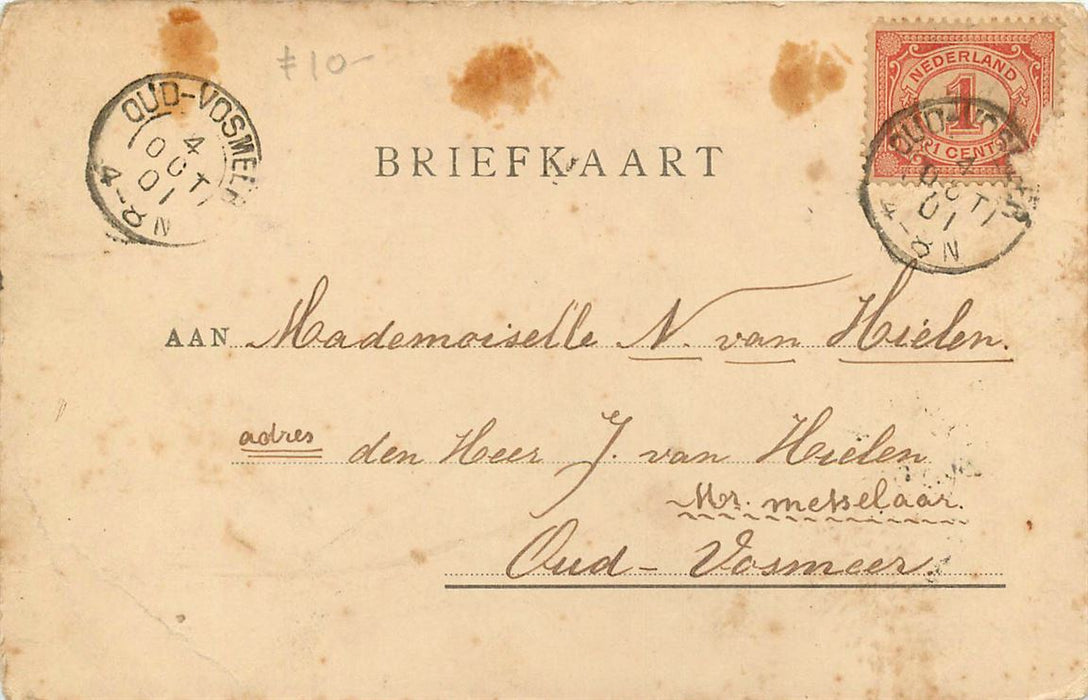 ƒ10-
OUD-VOSMEER
4
OCT
01
4-8 N
NEDERLAND
1
1 CENT
OUD-VOSMEER
4
OCT
01
4-8 N
BRIEFKAART
AAN Mademoiselle N. van Hielen.
adres den Heer J. van Hielen
Mr. metselaar.
Oud-Vosmeer.